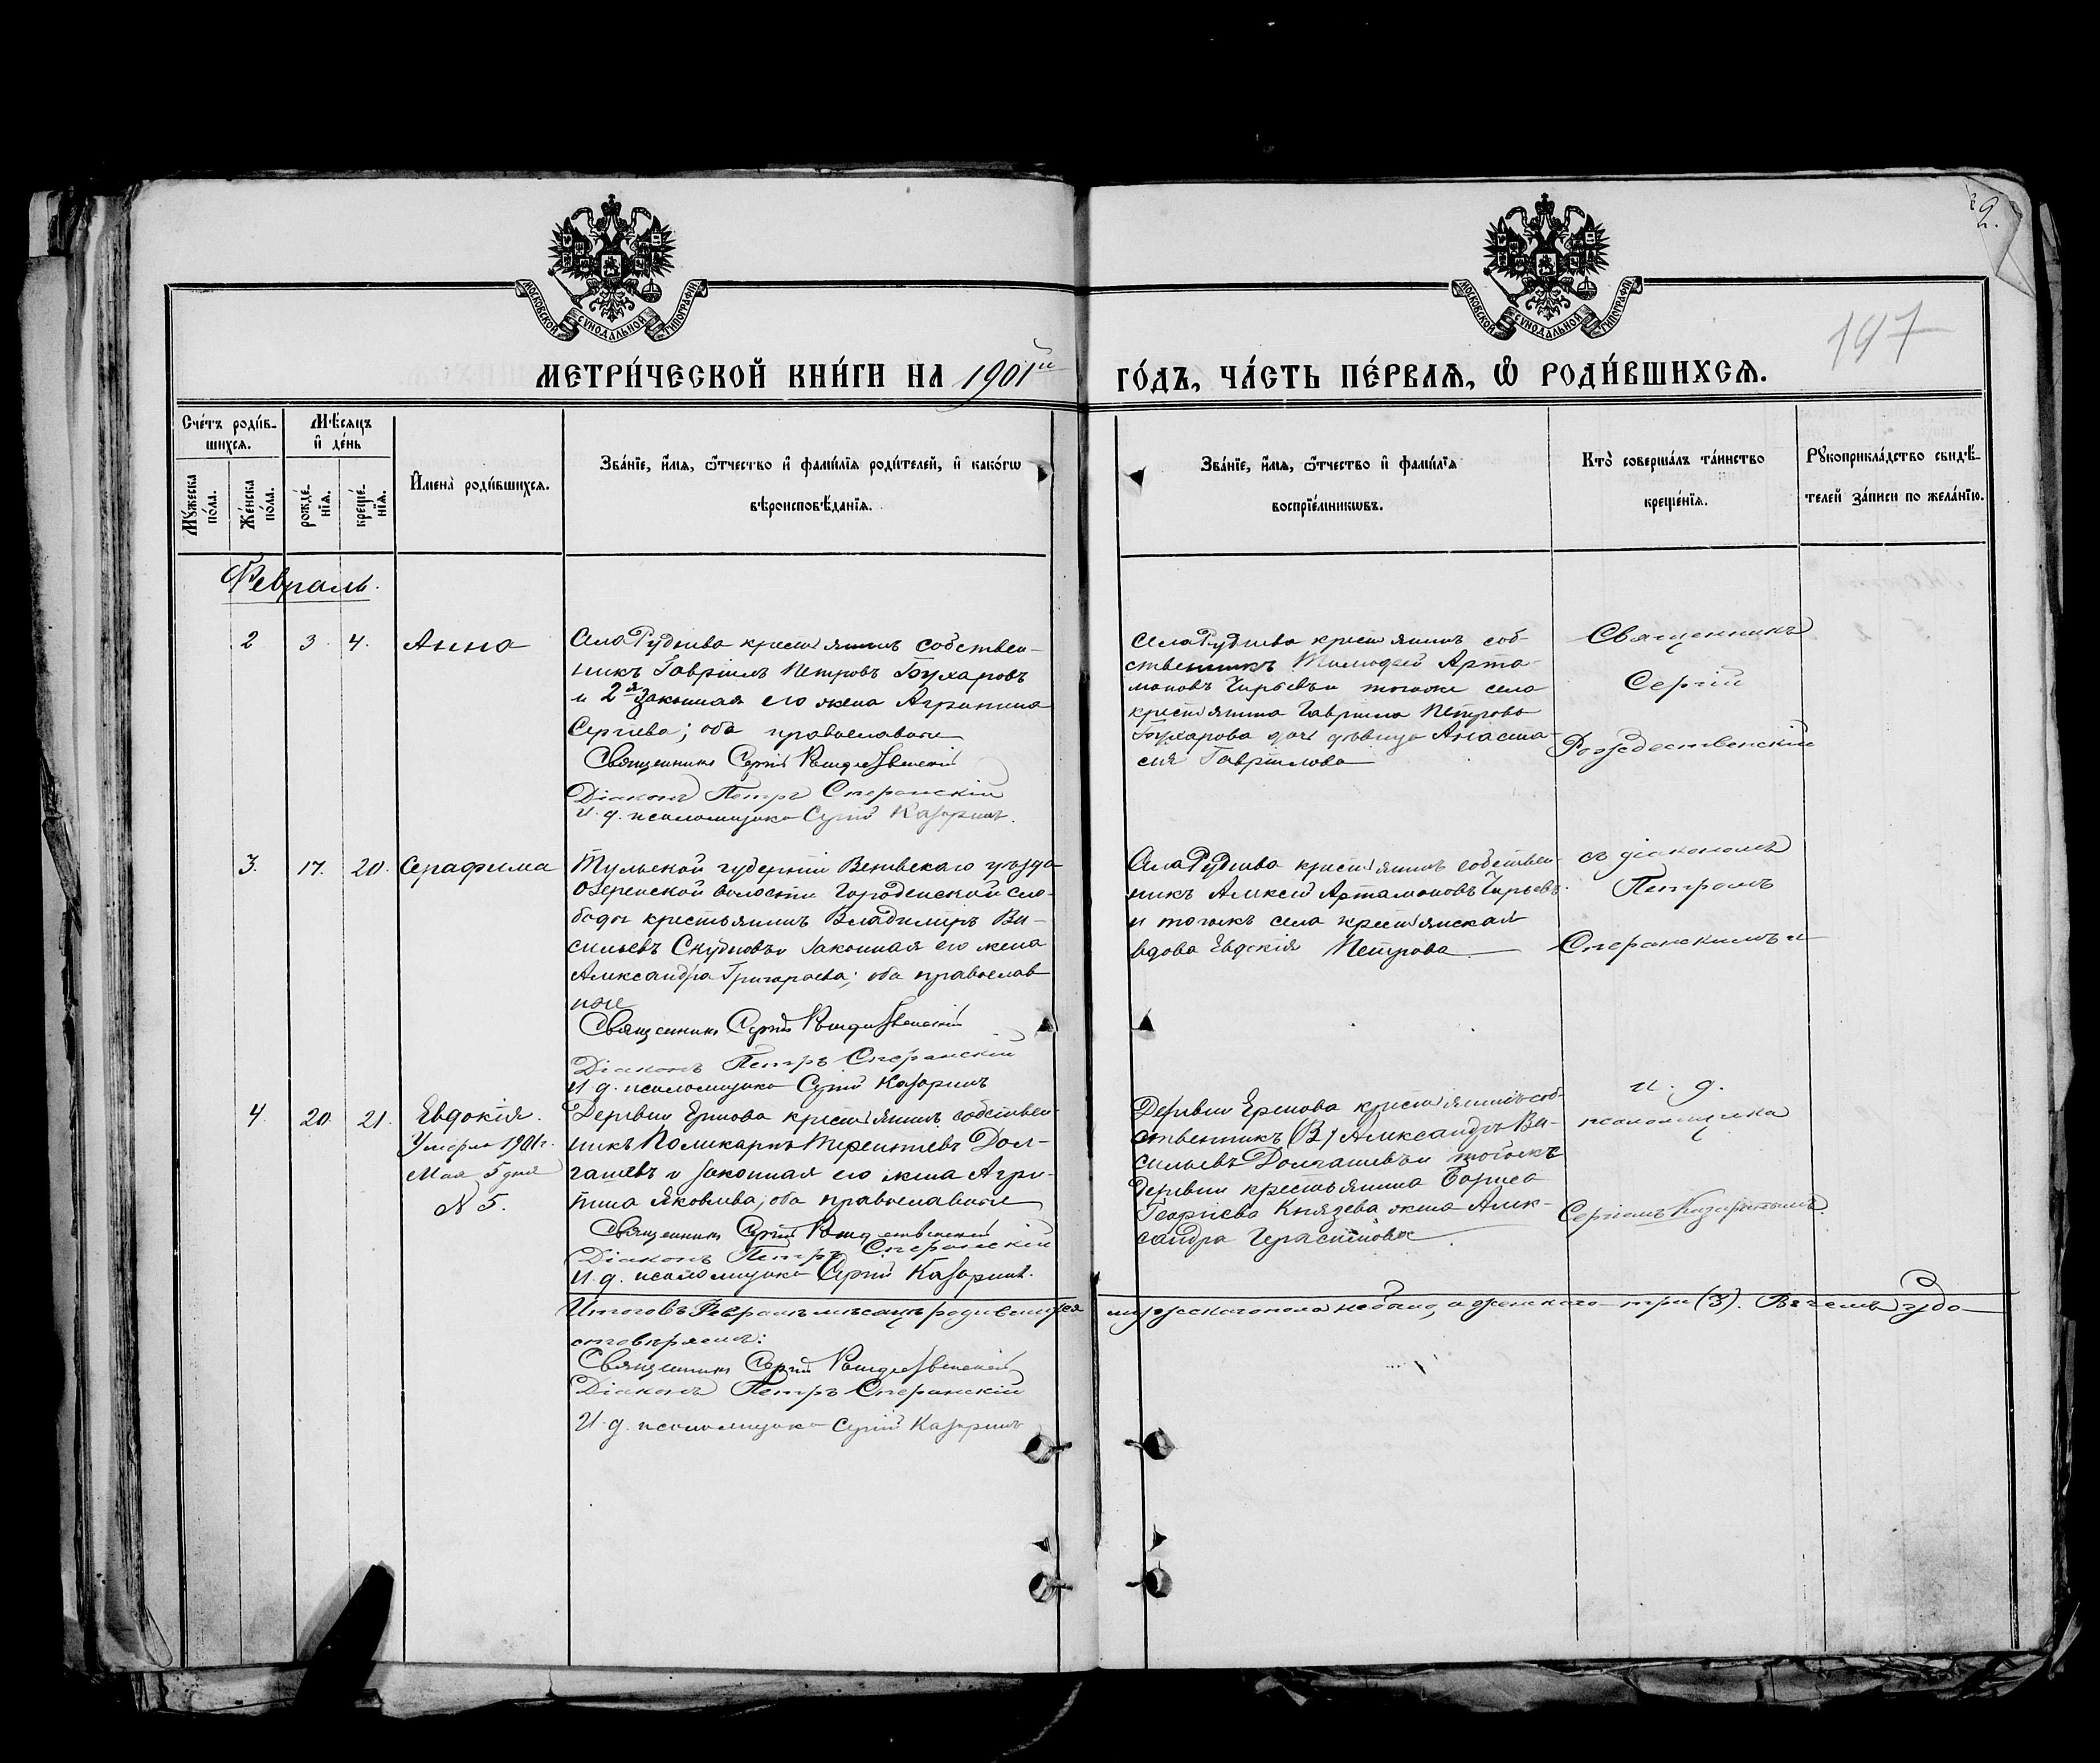 2.
197
МОСКОВСКОЙ СѴНОДАЛЬНОЙ ТИПОГРАФІИ
МОСКОВСКОЙ СѴНОДАЛЬНОЙ ТИПОГРАФІИ
МЕТРИ́ЧЕСКОЙ КНИ́ГИ НА 1901й ГО́ДЪ, ЧА́СТЬ ПЕ́РВАѦ, Ѽ РОДИ́ВШИХСѦ.
Сче́тъ роди́в-
шихсѧ.
Мѣ́сѧцъ
и҆ де́нь
Мꙋ́жеска
по́ла.
Же́нска
по́ла.
рожде́-
нїѧ.
креще́-
нїѧ.
И҆мена̀ роди́вшихсѧ.
Зва́нїе, и҆́мѧ, ѻ҆́тчество и҆ фами́лїѧ роди́телей, и҆ како́гѡ
вѣроисповѣ́данїѧ.
Зва́нїе, и҆́мѧ, ѻ҆́тчество и҆ фами́лїѧ
воспрїе́мникѡвъ.
Кто̀ соверша́лъ та́инство
креще́нїѧ.
Рꙋкоприкла́дство свидѣ́-
телей за́писи по жела́нїю.
Февраль.
2 3. 4. Анна
Села Руднева крестьянинъ собствен-
никъ Гавріилъ Петровъ Бухаровъ
и 2я законная его жена Агрипина
Сергіева; оба православные
Священникъ Сергій Рождественскій
Діаконъ Петръ Сперанскій
И. д. псаломщика Сергій Казаринъ.
Села Руднева крестьянинъ соб-
ственникъ Тимофей Арта-
моновъ Чирьевъ и тогоже села
крестьянина Гавріила Петрова
Бухарова дочь дѣвица Анаста-
сія Гавріилова
Священникъ
Сергій
Рождественскій
3. 17. 20. Серафима
Тульской губерніи Веневскаго уѣзда
Озеренской волости Городенской сло-
боды крестьянинъ Владиміръ Ва-
сильевъ и законная его жена
Александра Григорьева; оба православ
ные
Священникъ Сергій Рождественскій
Діаконъ Петръ Сперанскій
И. д. псаломщика Сергій Казаринъ
Села Руднева крестьянинъ собствен-
никъ Алексѣй Артамоновъ Чирьевъ
и тогожъ села крестьянская
вдова Евдокія Петрова
съ діакономъ
Петромъ
Сперанскимъ и
4. 20. 21. Евдокія.
Умерла 1901 г.
Мая 5 дня
№ 5.
Деревни Ермова крестьянинъ собствен-
никъ Поликарпъ Терентьевъ Дол-
гашевъ и законная его жена Агри-
пина Яковлева; оба православные
Священникъ Сергій Рождественскій
Діаконъ Петръ Сперанскій
И. д. псаломщика Сергій Казаринъ.
Деревни Ермова крестьянинъ соб-
ственникъ (В) Александръ Ва-
сильевъ Долгашевъ и тогожъ
деревни крестьянина Бориса
Георгіева Князева жена Алек-
сандра Герасимова
и. д.
псаломщика
Сергіемъ Казаринымъ.
Итого въ Февралѣ мѣсяцѣ родившихся мужескаго пола не было, а женскаго три (3). Въ чемъ и удо-
стовѣряемъ:
Священникъ Сергій Рождественскій
Діаконъ Петръ Сперанскій
И. д. псаломщика Сергій Казаринъ